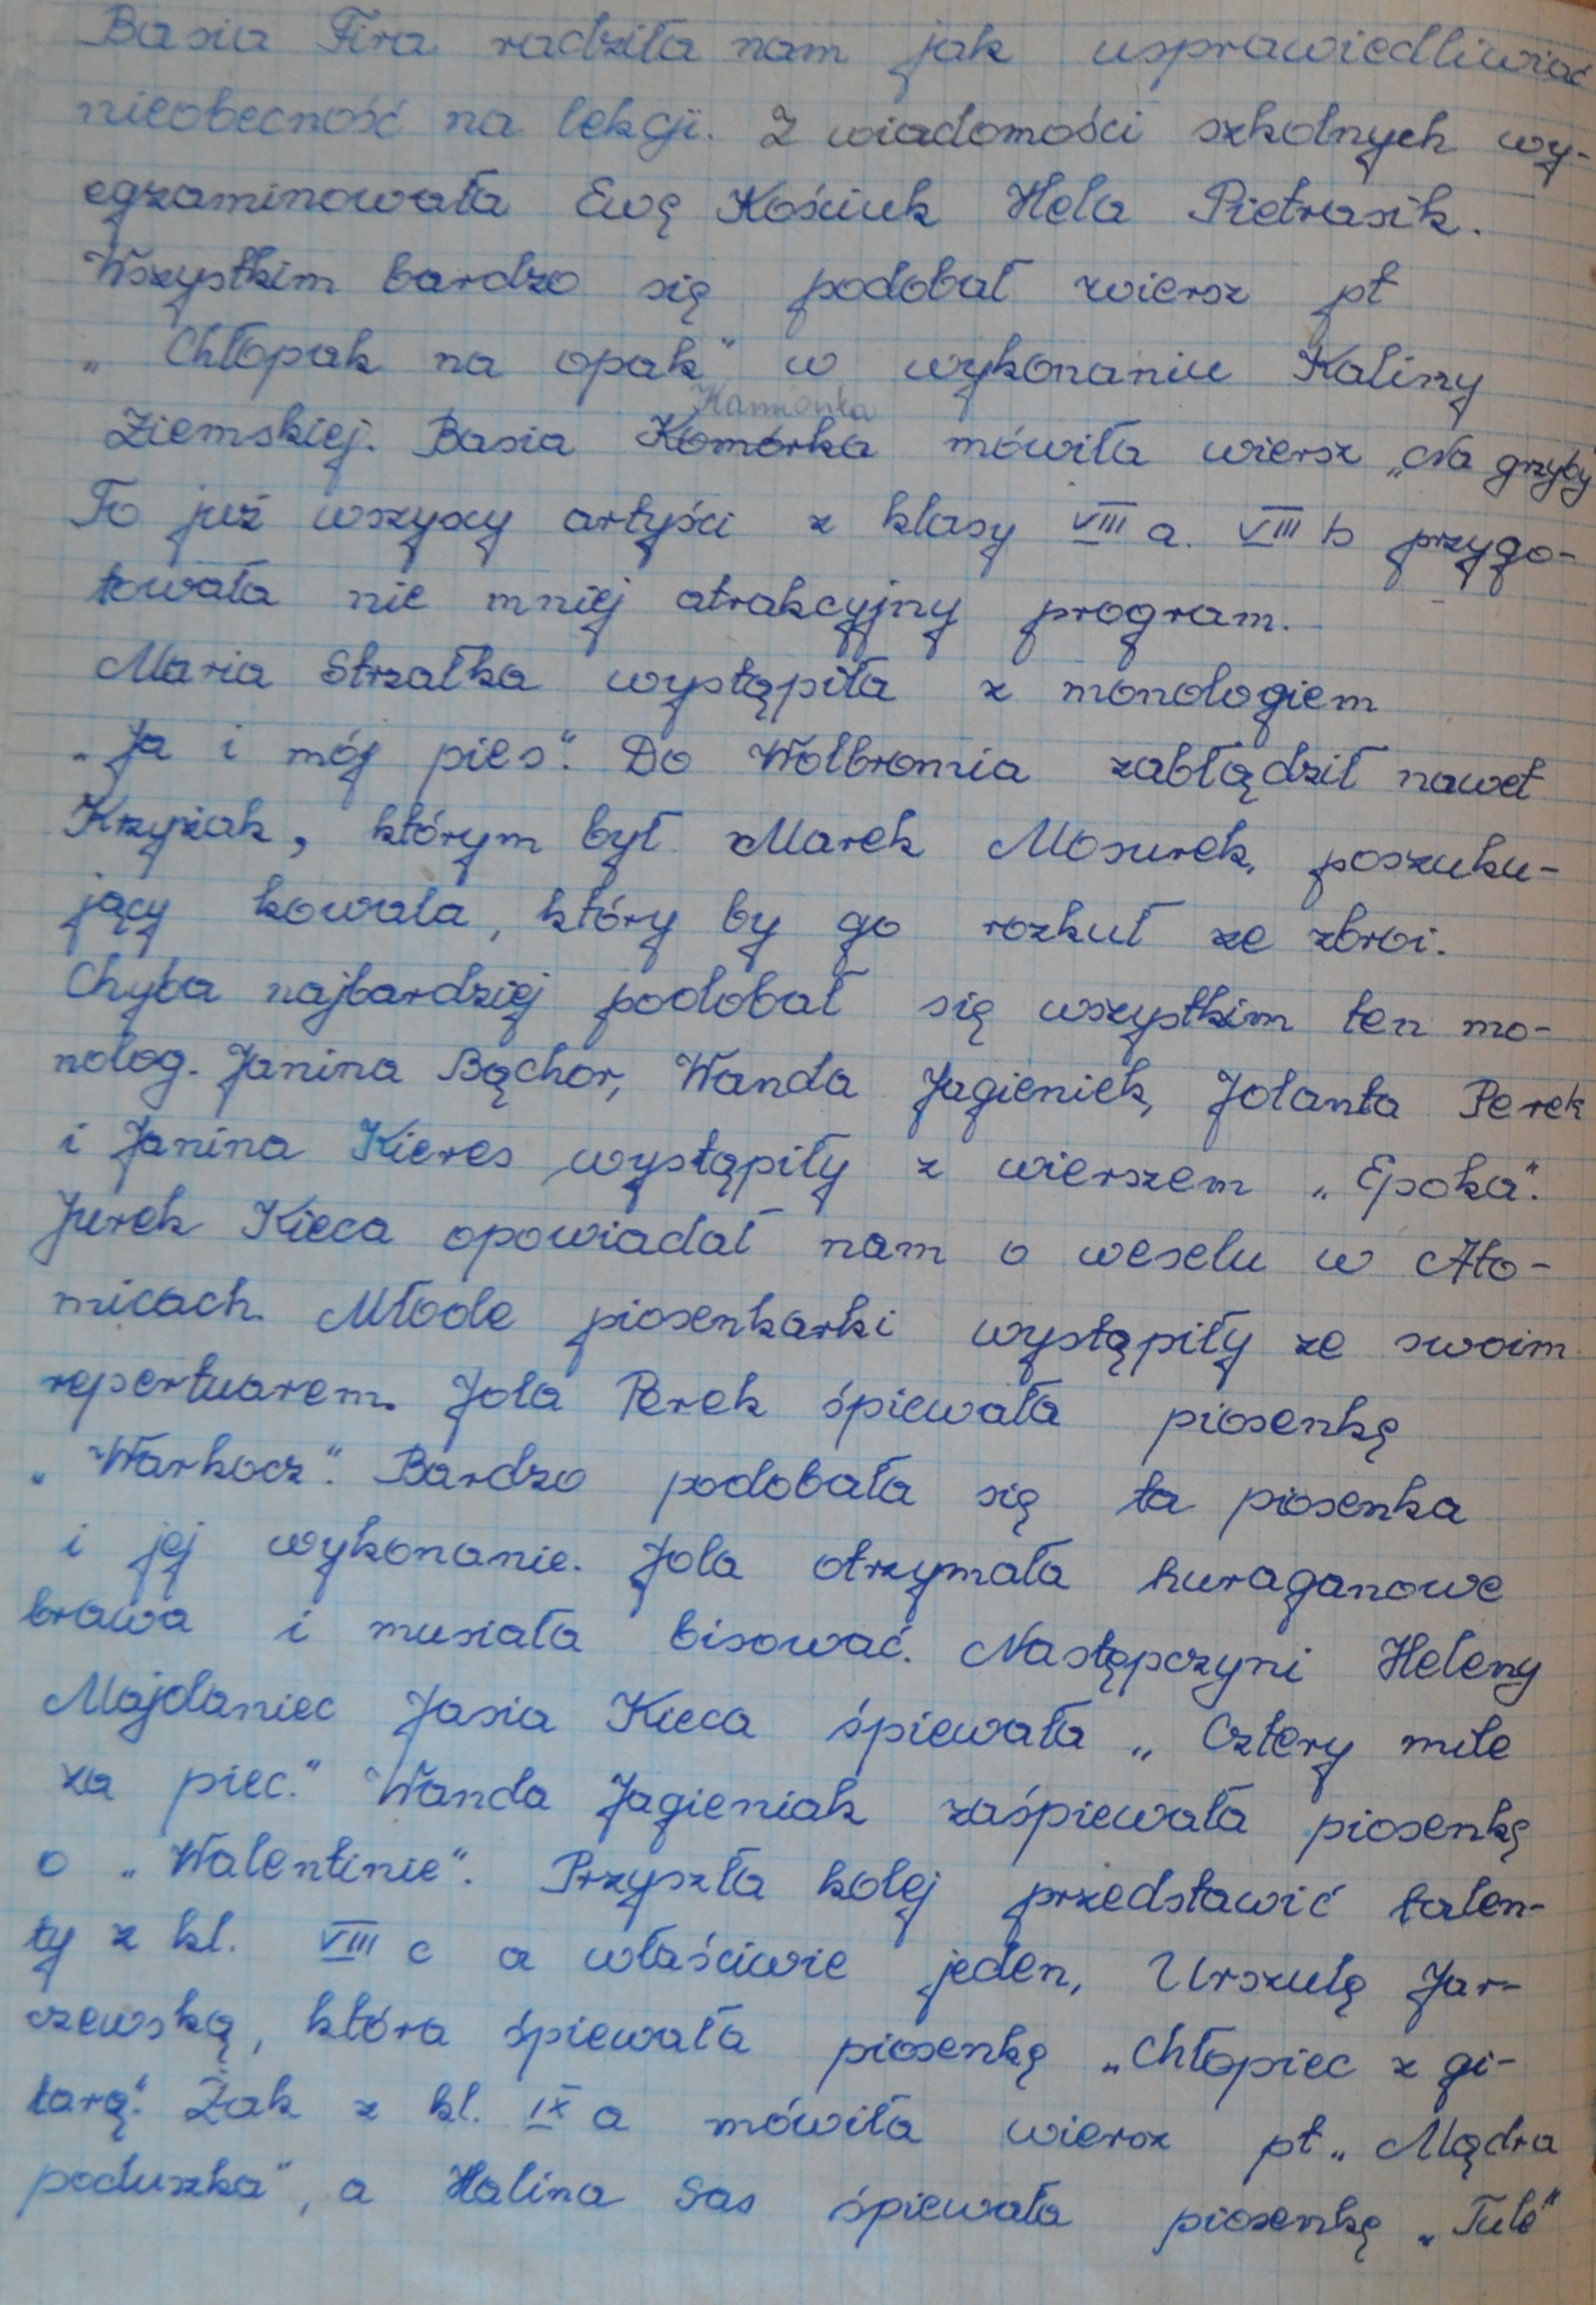 Basia Fira radziła nam jak usprawiedliwiać
nieobecność na lekcji. Z wiadomości szkolnych wy-
egzaminowała Ewę Kościuk Hela Pietrasik.
Wszystkim bardzo się podobał wiersz pt
„Chłopak na opak" w wykonaniu Kaliny
Kamionka
Ziemskiej. Basia Komórka mówiła wiersz „Na grzyby
To już wszyscy artyści z klasy VIII a. VIII b przygo-
towała nie mniej atrakcyjny program.
Maria Strzałka wystąpiła z monologiem
„Ja i mój pies". Do Wolbromia zabłądził nawet
Krzyżak, którym był Marek Mosurek, poszuku-
jący kowala, który by go rozkuł ze zbroi.
Chyba najbardziej podobał się wszystkim ten mo-
nolog. Janina Bąchor, Wanda Jagieniek, Jolanta Perek
i Janina Kieres wystąpiły z wierszem „Epoka".
Jurek Kieca opowiadał nam o weselu w Ato-
micach. Młode piosenkarki wystąpiły ze swoim
repertuarem. Jola Perek śpiewała piosenkę
„Warkocz". Bardzo podobała się ta piosenka
i jej wykonanie. Jola otrzymała huraganowe
brawa i musiała bisować. Następczyni Heleny
Majdaniec Jasia Kieca śpiewała „Cztery mile
za piec." Wanda Jagieniak zaśpiewała piosenkę
o „Walentinie". Przyszła kolej przedstawić talen-
ty z kl. VIII c a właściwie jeden, Urszulę Jar-
czewską, która śpiewała piosenkę „Chłopiec z gi-
tarą". Żak z kl. IX a mówiła wiersz pt. „Mądra
poduszka", a Halina Sas śpiewała piosenkę „Tule"